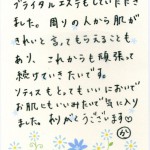 ブライダルエステもしていただき
ました。周りの人から肌が
きれいと言ってもらえることも
あり、これからも頑張って
続けていきたいです。
ソティスもとってもいいにおいで
お肌にもいいみたいで気に入り
ました。ありがとうございます
か